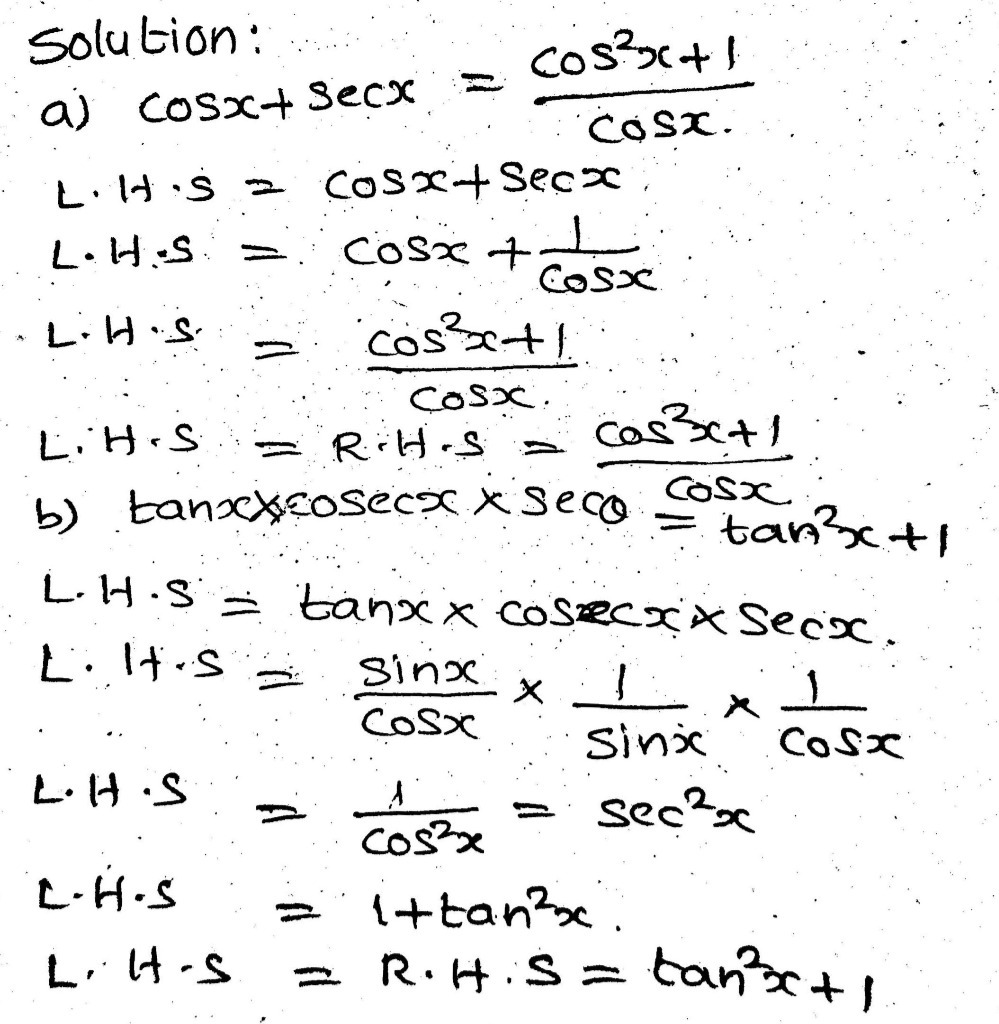 Solution:
a) cosx + secx = (cos²x+1)/(cosx).
L.H.S = cosx + secx
L.H.S = cosx + 1/(cosx)
L.H.S = (cos²x+1)/(cosx).
L.H.S = R.H.S = (cos²x+1)/(cosx)
b) tanx x cosecx x secθ = tan²x+1
L.H.S = tanx x cosecx x secx.
L.H.S = (sinx)/(cosx) x 1/(sinx) x 1/(cosx)
L.H.S = 1/(cos²x) = sec²x
L.H.S = 1+tan²x.
L.H.S = R.H.S = tan²x+1